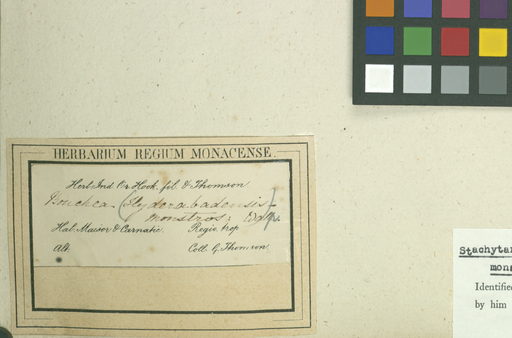 HERBARIUM REGIUM MONACENSE.
Herb. Ind. Or. Hook. fil. & Thomson
Bouchea (Hyderabadensis
monstros:
Hab. Maisor & Carnatic. Regio trop
Alt. Coll. G. Thomson
Stachytar
mons
Identified
by him